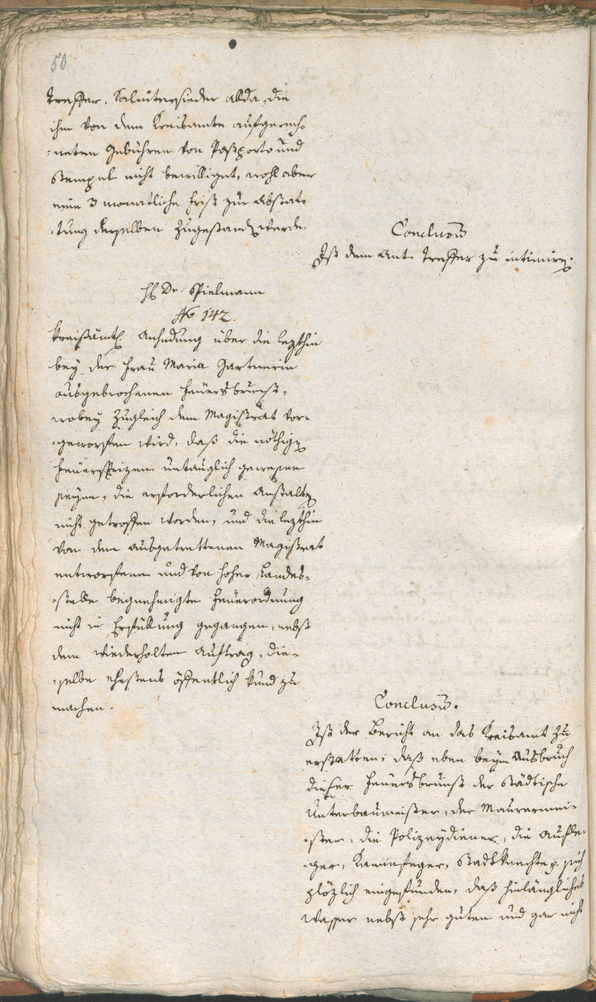 50
Treffer, Saliterssieder alda, die
ihm von dem Kreisamte aufgerech-
neten Gebühren von Postporto und
Stempel nicht bewilliget, wohl aber
eine 3 monatliche Frist zur Abstat-
tung derselben zugestanden werde.
Conclusum
Ist dem Ant. Treffer zu intimiren.
H Dr. Spielmann
No 142.
Kreisämtl. Ahndung über die lezthin
bey der Frau Maria Gartnerin
ausgebrochenen Feuersbrunst,
wobey zugleich dem Magistrat vor-
geworfen wird, daß die nöthigen
Feuerspritzen untauglich gewesen
seyen, die erforderlichen Anstalten
nicht getroffen worden, und die lezthin
von dem ausgetrettenen Magistrat
entworfene und von hoher Landes-
stelle begnehmigte Feuerordnung
nicht in Erfüllung gegangen, nebst
dem wiederholten Auftrag, die-
selbe ehestens öffentlich kund zu
machen.
Conclusum.
Ist der Bericht an das Kreisamt zu
erstatten: daß eben beym Ausbruch
dieser Feuersbrunst der Städtische
Unterbaumeister, der Maurermei-
ster, die Polizeydiener, die
Kaminfeger, Stadtknechte p. sich
plözlich eingefunden, daß hinlängliches
Wasser nebst sehr guten und gar nicht